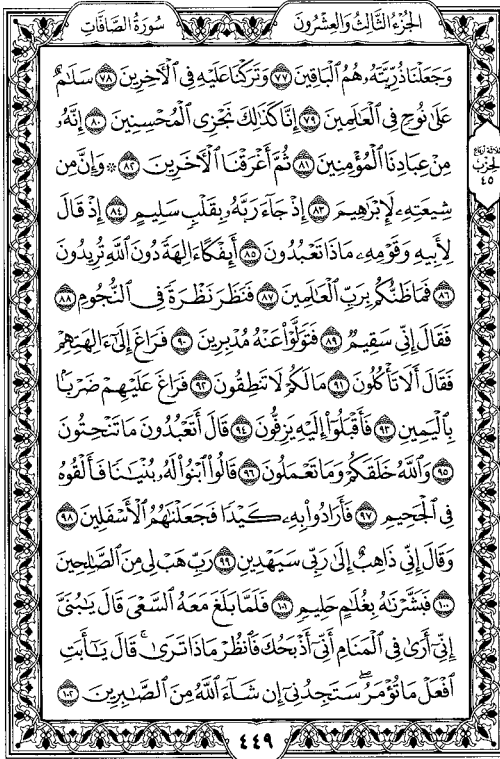 الجُزْءُ الثَّالِثُ وَالعِشْرُونَ
سُورَةُ الصَّافَّاتِ
وَجَعَلْنَا ذُرِّيَّتَهُۥ هُمُ ٱلْبَاقِينَ ٧٧ وَتَرَكْنَا عَلَيْهِ فِي ٱلْأَخِرِينَ ٧٨ سَلَٰمٌ
عَلَىٰ نُوحٍ فِي ٱلْعَٰلَمِينَ ٧٩ إِنَّا كَذَٰلِكَ نَجْزِي ٱلْمُحْسِنِينَ ٨٠ إِنَّهُۥ
مِنْ عِبَادِنَا ٱلْمُؤْمِنِينَ ٨١ ثُمَّ أَغْرَقْنَا ٱلْأَخَرِينَ ٨٢ ۞ وَإِنَّ مِن
شِيعَتِهِۦ لَإِبْرَٰهِيمَ ٨٣ إِذْ جَآءَ رَبَّهُۥ بِقَلْبٍ سَلِيمٍ ٨٤ إِذْ قَالَ
لِأَبِيهِ وَقَوْمِهِۦ مَاذَا تَعْبُدُونَ ٨٥ أَئِفْكًا ءَالِهَةً دُونَ ٱللَّهِ تُرِيدُونَ
٨٦ فَمَا ظَنُّكُم بِرَبِّ ٱلْعَٰلَمِينَ ٨٧ فَنَظَرَ نَظْرَةً فِي ٱلنُّجُومِ ٨٨
فَقَالَ إِنِّي سَقِيمٌ ٨٩ فَتَوَلَّوْا۟ عَنْهُ مُدْبِرِينَ ٩٠ فَرَاغَ إِلَىٰٓ ءَالِهَتِهِمْ
فَقَالَ أَلَا تَأْكُلُونَ ٩١ مَا لَكُمْ لَا تَنطِقُونَ ٩٢ فَرَاغَ عَلَيْهِمْ ضَرْبًۢا
بِٱلْيَمِينِ ٩٣ فَأَقْبَلُوٓا۟ إِلَيْهِ يَزِفُّونَ ٩٤ قَالَ أَتَعْبُدُونَ مَا تَنْحِتُونَ
٩٥ وَٱللَّهُ خَلَقَكُمْ وَمَا تَعْمَلُونَ ٩٦ قَالُوا۟ ٱبْنُوا۟ لَهُۥ بُنْيَٰنًا فَأَلْقُوهُ
فِي ٱلْجَحِيمِ ٩٧ فَأَرَادُوا۟ بِهِۦ كَيْدًا فَجَعَلْنَٰهُمُ ٱلْأَسْفَلِينَ ٩٨
وَقَالَ إِنِّي ذَاهِبٌ إِلَىٰ رَبِّي سَيَهْدِينِ ٩٩ رَبِّ هَبْ لِي مِنَ ٱلصَّٰلِحِينَ
١٠٠ فَبَشَّرْنَٰهُ بِغُلَٰمٍ حَلِيمٍ ١٠١ فَلَمَّا بَلَغَ مَعَهُ ٱلسَّعْيَ قَالَ يَٰبُنَيَّ
إِنِّيٓ أَرَىٰ فِي ٱلْمَنَامِ أَنِّيٓ أَذْبَحُكَ فَٱنظُرْ مَاذَا تَرَىٰ ۚ قَالَ يَٰٓأَبَتِ
ٱفْعَلْ مَا تُؤْمَرُ ۖ سَتَجِدُنِيٓ إِن شَآءَ ٱللَّهُ مِنَ ٱلصَّٰبِرِينَ ١٠٢
ثلاثة أرباع
الحزب
٤٥
٤٤٩